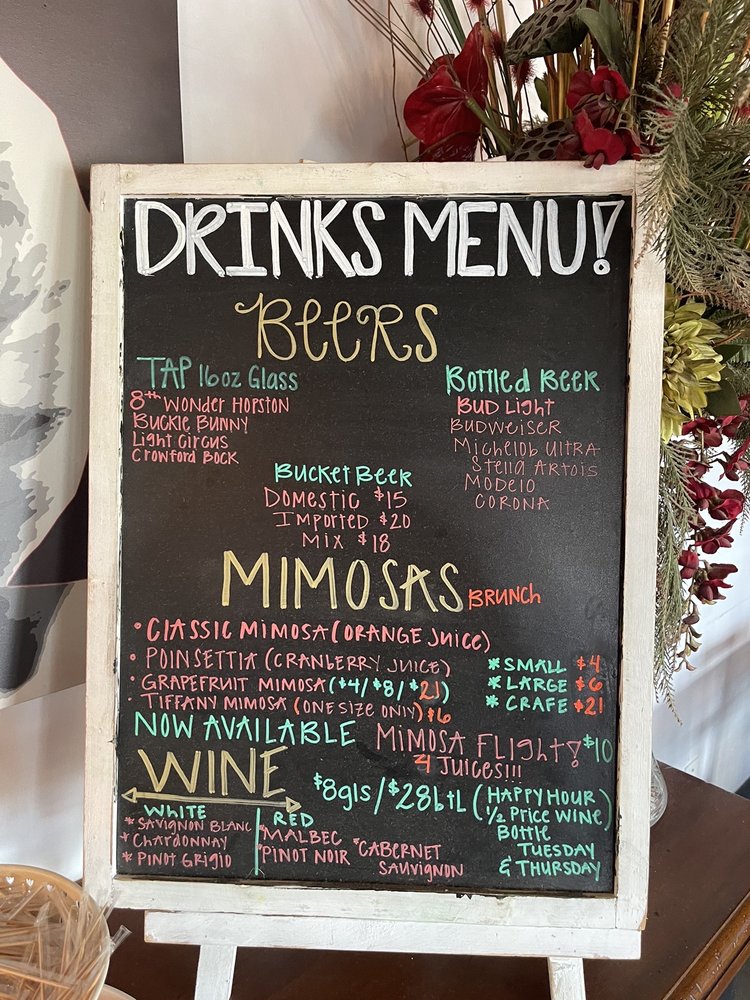 DRINKS MENU!
BEERS
TAP 16oz Glass
8th WONDER HOPSTON
BUCKLE BUNNY
Light CIRCUS
CROWFORD BOCK
Bottled BEER
BUD LIGHT
BUDWEISER
Michelob ULTRA
Stella ARTOIS
MODELO
CORONA
BUCKET BEER
DOMESTIC $15
IMPORTED $20
MIX $18
MIMOSAS BRUNCH
• CLASSIC MIMOSA (ORANGE JUICE)
• POINSETTIA (CRANBERRY JUICE)
• GRAPEFRUIT MIMOSA ($4/$8/$21)
• TIFFANY MIMOSA (ONE SIZE ONLY) $6
* SMALL $4
* LARGE $6
* CRAFE $21
NOW AVAILABLE MIMOSA FLIGHT! $10
4 JUICES!!!
WINE
$8gls/$28btL (HAPPY HOUR)
1/2 PRICE WINE)
BOTTLE
TUESDAY
& THURSDAY
WHITE
* SAVIGNON BLANC
* CHARDONNAY
* PINOT GRIGIO
RED
* MALBEC
* PINOT NOIR
* CABERNET
SAUVIGNON